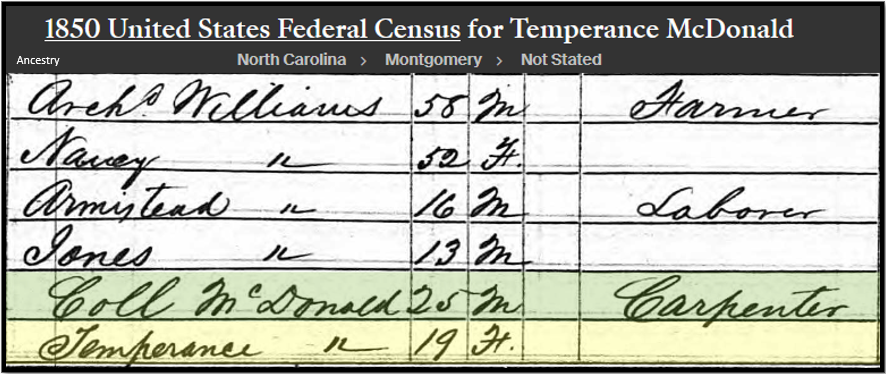 1850 United States Federal Census for Temperance McDonald
Ancestry North Carolina > Montgomery > Not Stated
Archd Williams 58 M Farmer
Nancy " 52 F.
Armistead " 16 M Laborer
Jones " 13 M
Coll McDonald 25 M Carpenter
Temperance " 19 F.